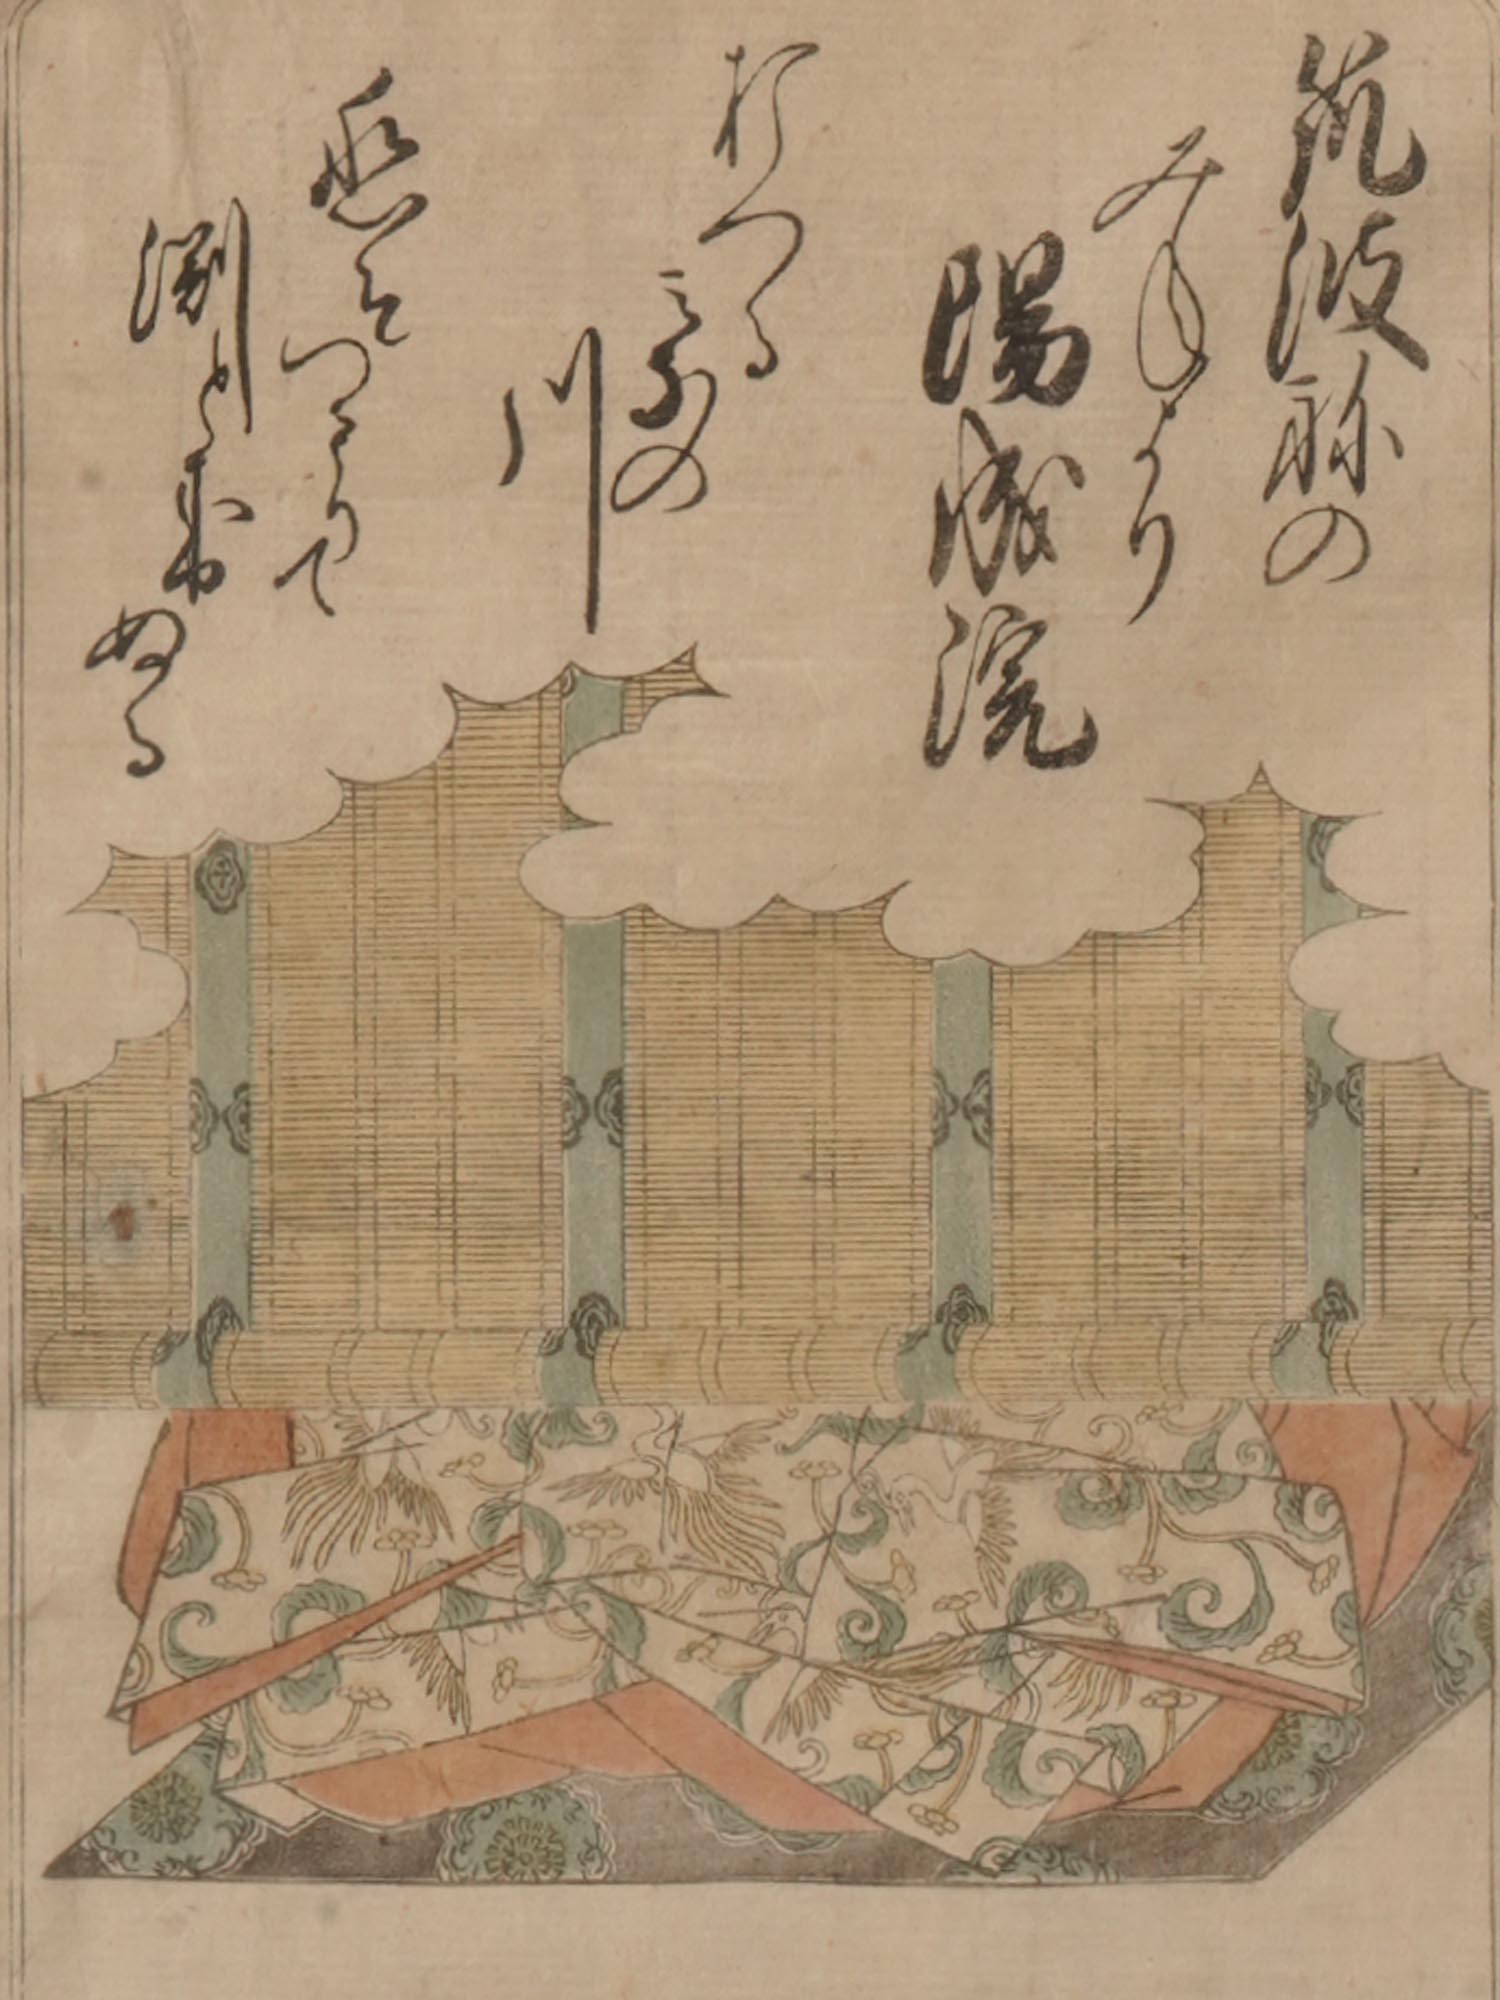 筑波祢の
みねより
陽成院
おつる
みなの
川
恋そつもりて
淵となりぬる